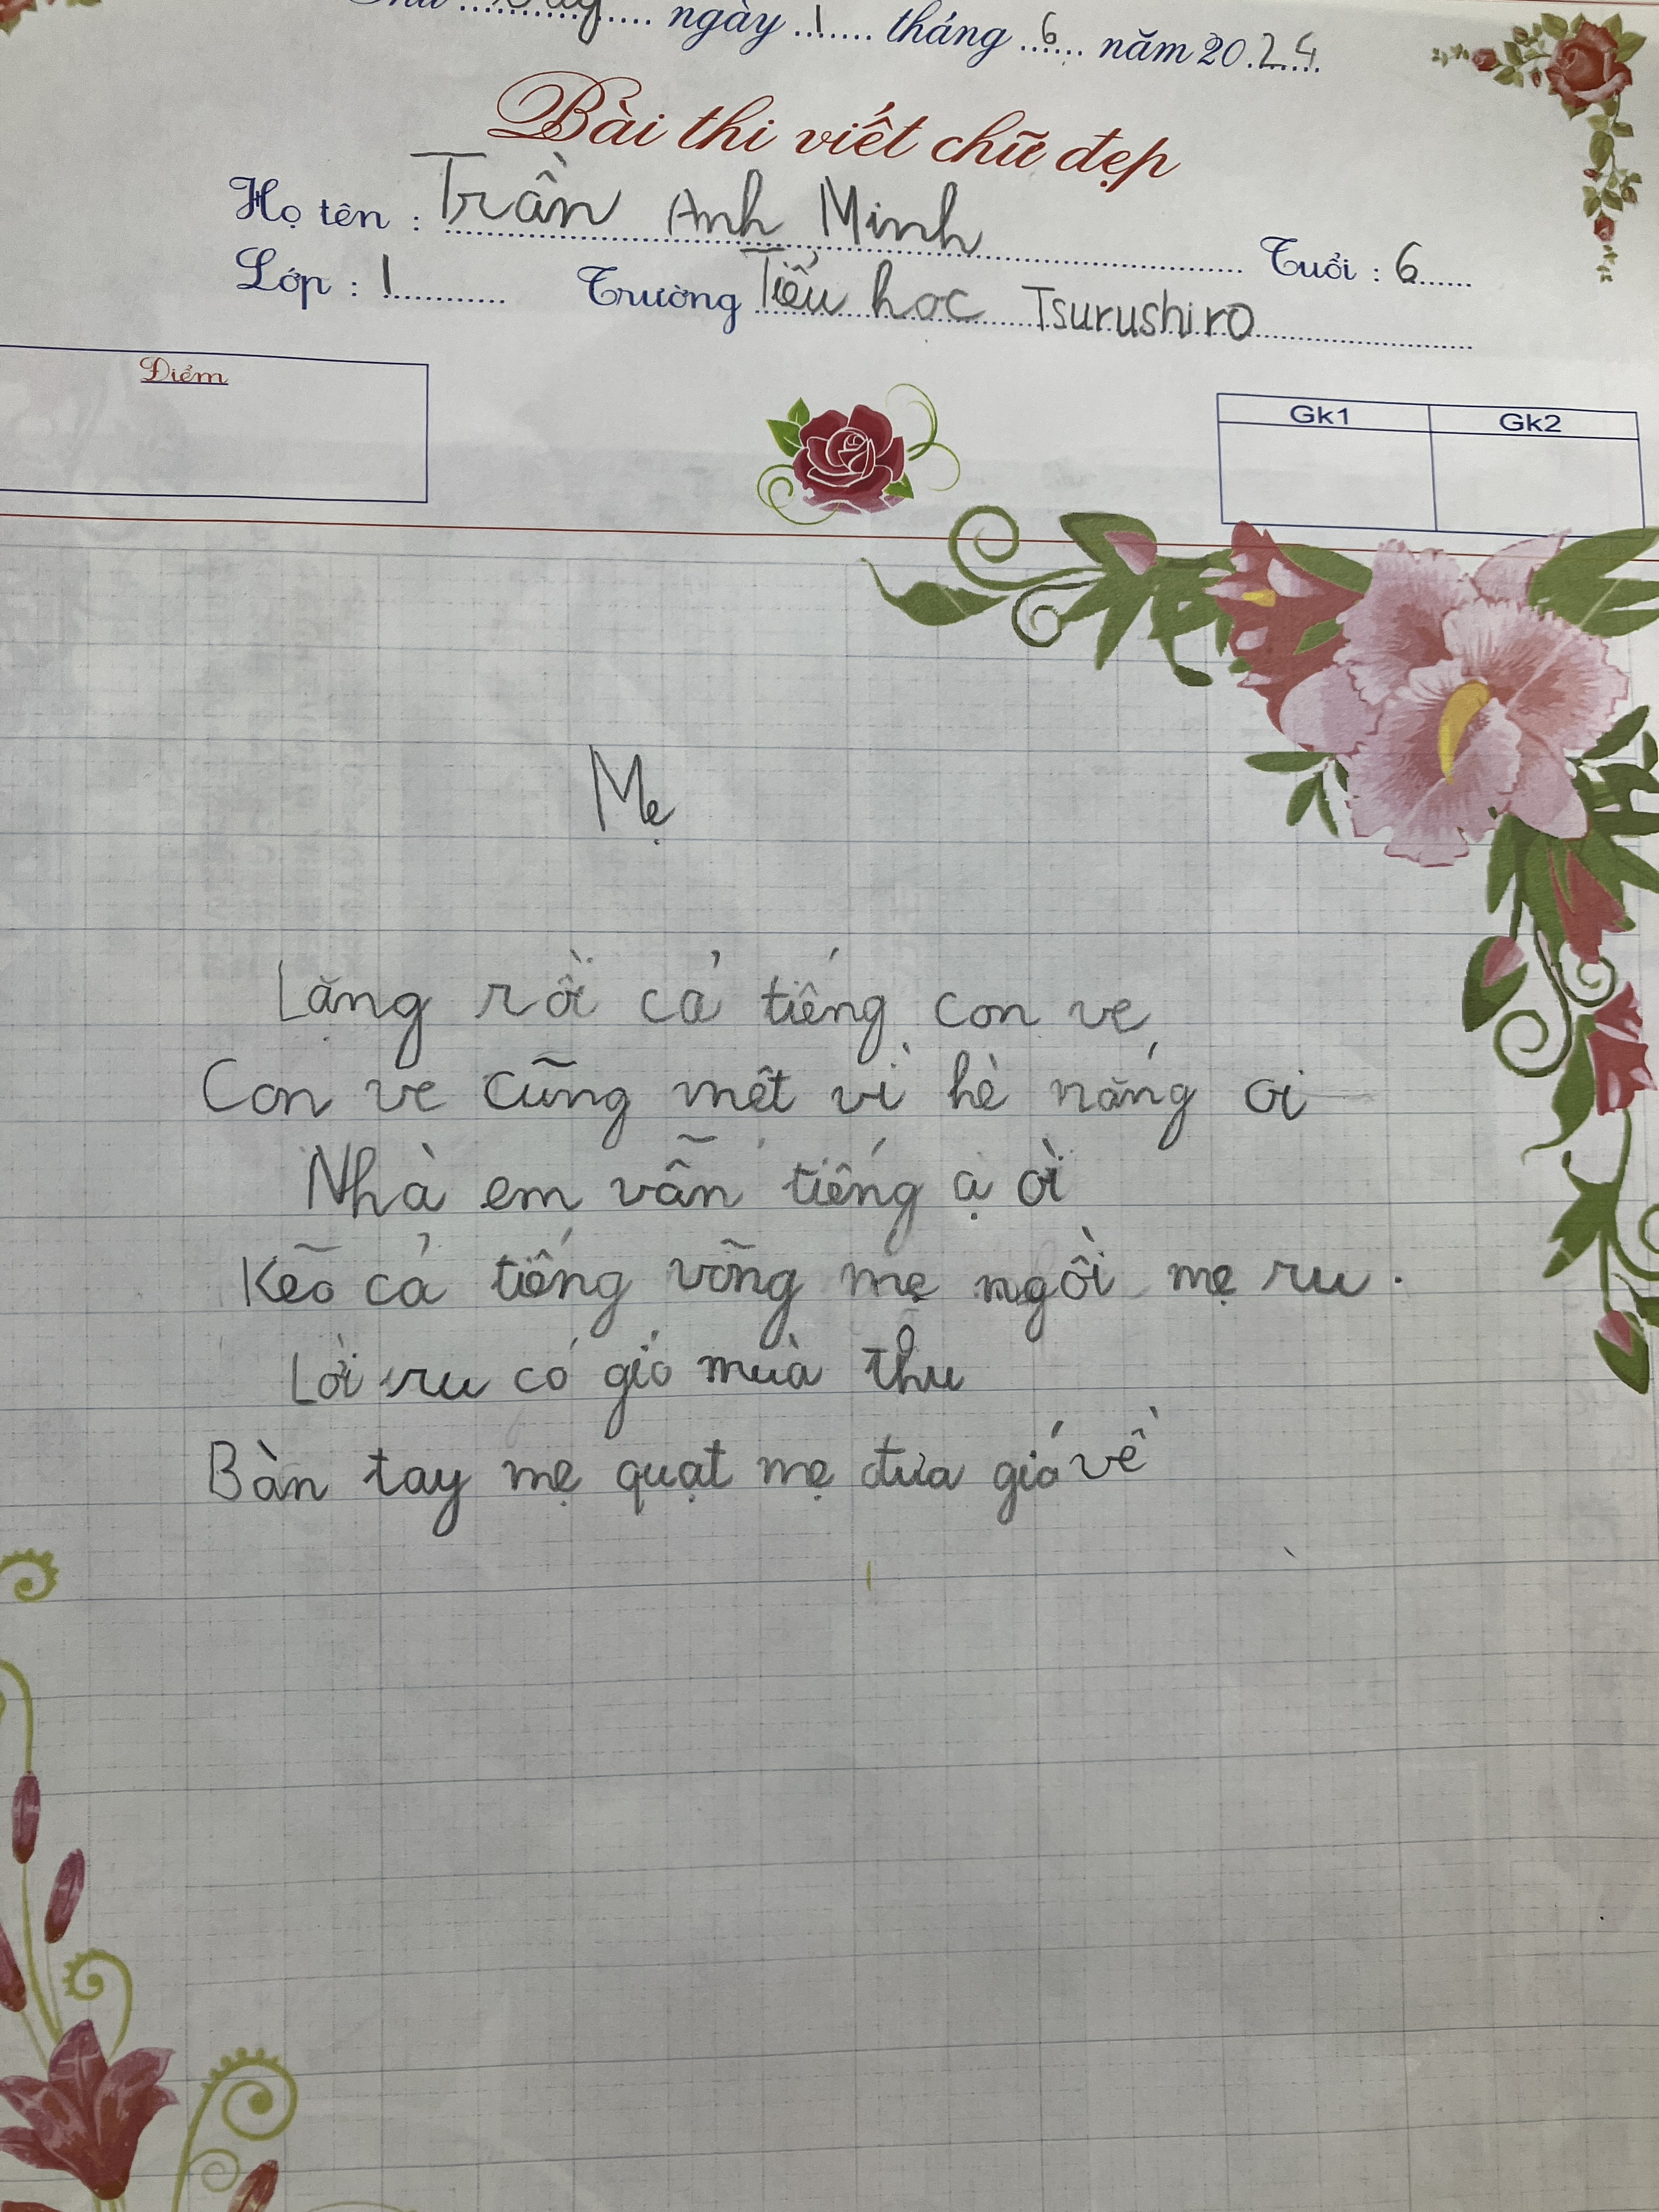 ngày 1 tháng 6 năm 2024
Bài thi viết chữ đẹp
Họ tên : Trần Anh Minh Tuổi : 6
Lớp : 1 Trường Tiểu hoc Tsurushiro
Điểm
Gk1 Gk2
Mẹ
Lặng rồi cả tiếng con ve
Con ve cũng mệt vì hè nắng oi
Nhà em vẫn tiếng ạ ời
Kẽo cả tiếng võng mẹ ngồi mẹ ru.
Lời ru có gió mùa thu
Bàn tay mẹ quạt mẹ đưa gió về